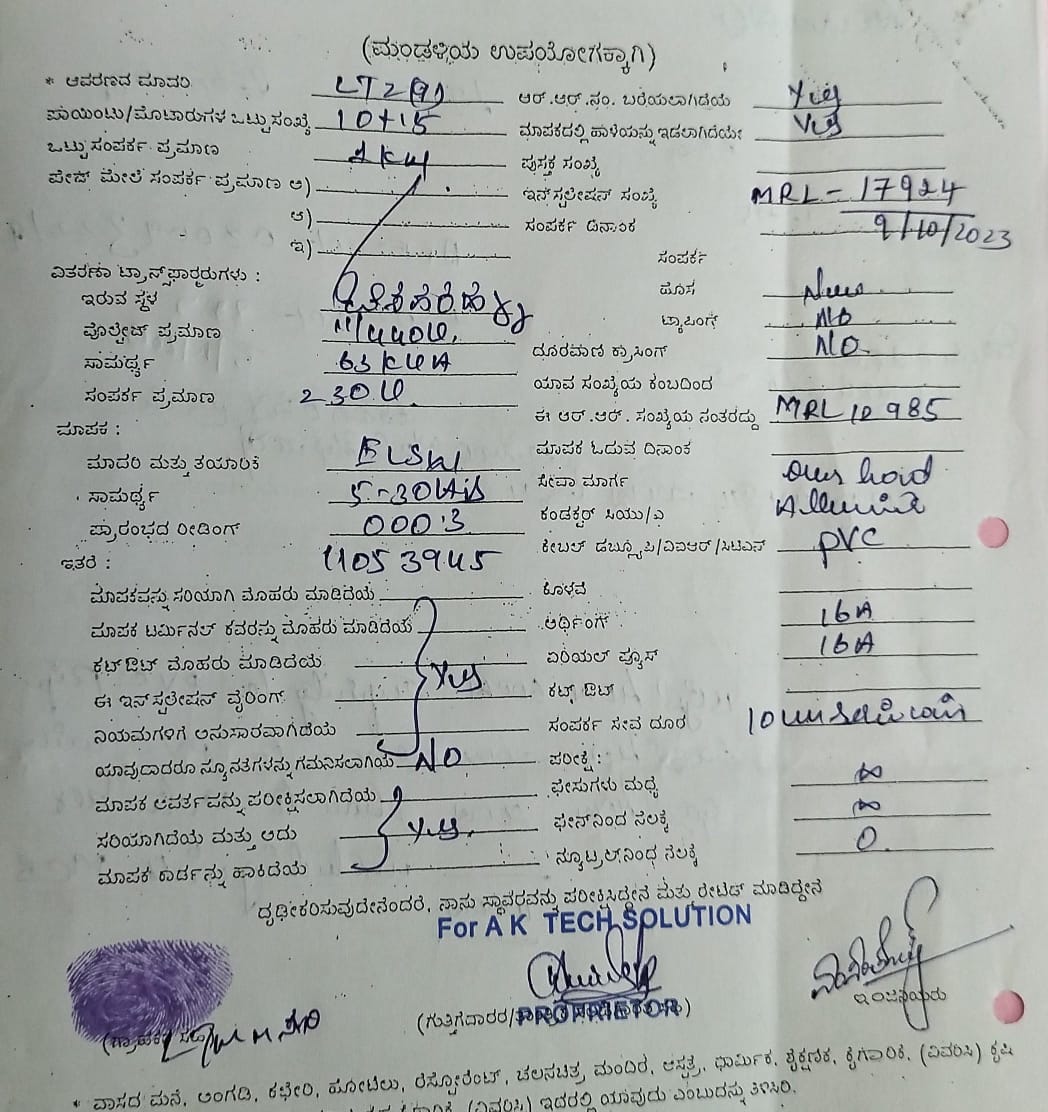 (ಮಂಡಳಿಯ ಉಪಯೋಗಕ್ಕಾಗಿ)
* ಆವರಣದ ಮಾದರಿ LT2 ಆರ್.ಆರ್.ಸಂ. ಬರೆಯಲಾಗಿದೆಯೆ Yes
ಪಾಯಿಂಟು/ಮೋಟಾರುಗಳ ಒಟ್ಟು ಸಂಖ್ಯೆ 10+15 ಮಾಪಕದಲ್ಲಿ ಹಾಳೆಯನ್ನು ಇಡಲಾಗಿದೆಯೇ Yes
ಒಟ್ಟು ಸಂಪರ್ಕ ಪ್ರಮಾಣ 1 KW ಪುಸ್ತಕ ಸಂಖ್ಯೆ
ಪೇಜ್ ಮೇಲೆ ಸಂಪರ್ಕ ಪ್ರಮಾಣ ಅ) ಇನ್‌ಸ್ಟಲೇಷನ್ ಸಂಖ್ಯೆ MRL-17924
ಆ) ಸಂಪರ್ಕ ದಿನಾಂಕ 9/10/2023
ಇ) ಸಂಪರ್ಕ
ವಿತರಣಾ ಟ್ರಾನ್ಸ್‌ಫಾರ್ಮರುಗಳು :
ಇರುವ ಸ್ಥಳ ಹೊಸ New
ವೊಲ್ಟೇಜ್ ಪ್ರಮಾಣ 11/440V ಟ್ಯಾಪಿಂಗ್ No
ಸಾಮರ್ಥ್ಯ 63 KVA ದೂರವಾಣಿ ಕ್ರಾಸಿಂಗ್ No
ಸಂಪರ್ಕ ಪ್ರಮಾಣ 230V ಯಾವ ಸಂಖ್ಯೆಯ ಕಂಬದಿಂದ
ಈ ಆರ್.ಆರ್. ಸಂಖ್ಯೆಯ ನಂತರದ್ದು MRL 10985
ಮಾಪಕ :
ಮಾದರಿ ಮತ್ತು ತಯಾರಿಕೆ ಮಾಪಕ ಓದುವ ದಿನಾಂಕ
ಸಾಮರ್ಥ್ಯ 5-30 ಸೇವಾ ಮಾರ್ಗ
ಪ್ರಾರಂಭದ ರೀಡಿಂಗ್ 000.3 ಕಂಡಕ್ಟರ್ ಸಿಯು/ಎ
ಇತರೆ : 11053945 ಕೇಬಲ್ ಡಬ್ಲ್ಯೂಪಿ/ವಿಐಆರ್/ಸಿಟಿಎಸ್ PVC
ಮಾಪಕವನ್ನು ಸರಿಯಾಗಿ ಮೊಹರು ಮಾಡಿದೆಯೆ ಕೊಳವೆ
ಮಾಪಕ ಟರ್ಮಿನಲ್ ಕವರನ್ನು ಮೊಹರು ಮಾಡಿದೆಯೆ ಅರ್ಥಿಂಗ್ 16A
ಕಟ್‌ಔಟ್ ಮೊಹರು ಮಾಡಿದೆಯೆ Yes ಏರಿಯಲ್ ಫ್ಯೂಸ್ 16A
ಈ ಇನ್‌ಸ್ಟಲೇಷನ್ ವೈರಿಂಗ್ ಕಟ್ ಔಟ್
ನಿಯಮಗಳಿಗೆ ಅನುಸಾರವಾಗಿದೆಯೆ ಸಂಪರ್ಕ ಸೇವೆ ದೂರ 10
ಯಾವುದಾದರೂ ನ್ಯೂನತೆಗಳನ್ನು ಗಮನಿಸಲಾಗಿಯೆ NO ಪರೀಕ್ಷೆ :
ಮಾಪಕ ಆವರ್ತವನ್ನು ಪರೀಕ್ಷಿಸಲಾಗಿದೆಯೆ ಫೇಸುಗಳು ಮಧ್ಯೆ ∞
ಸರಿಯಾಗಿದೆಯೆ ಮತ್ತು ಅದು Yes ಫೇಸ್‌ನಿಂದ ನೆಲಕ್ಕೆ ∞
ಮಾಪಕ ಕಾರ್ಡನ್ನು ಹಾಕಿದೆಯೆ ನ್ಯೂಟ್ರಲ್‌ನಿಂಧ ನೆಲಕ್ಕೆ 0
ದೃಢೀಕರಿಸುವುದೇನೆಂದರೆ, ನಾನು ಸ್ಥಾವರವನ್ನು ಪರೀಕ್ಷಿಸಿದ್ದೇನೆ ಮತ್ತು ರೇಟೆಡ್ ಮಾಡಿದ್ದೇನೆ
For A K TECH SOLUTION
ಇಂಜಿನಿಯರು
(ಗುತ್ತಿಗೆದಾರರ/ PROPRIETOR
(ಗ್ರಾಹಕರ
* ವಾಸದ ಮನೆ, ಅಂಗಡಿ, ಕಛೇರಿ, ಹೋಟೆಲು, ರೆಸ್ಟೋರೆಂಟ್, ಚಲನಚಿತ್ರ ಮಂದಿರ, ಆಸ್ಪತ್ರೆ, ಧಾರ್ಮಿಕ, ಶೈಕ್ಷಣಿಕ, ಕೈಗಾರಿಕೆ, (ವಿವರಿಸಿ) ಕೃಷಿ
(ವಿವರಿಸಿ) ಇದರಲ್ಲಿ ಯಾವುದು ಎಂಬುದನ್ನು ತಿಳಿಸಿರಿ.